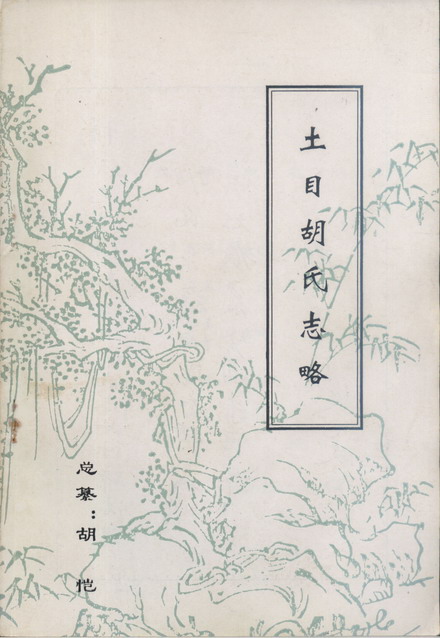 土目胡氏志略
总纂：胡恺